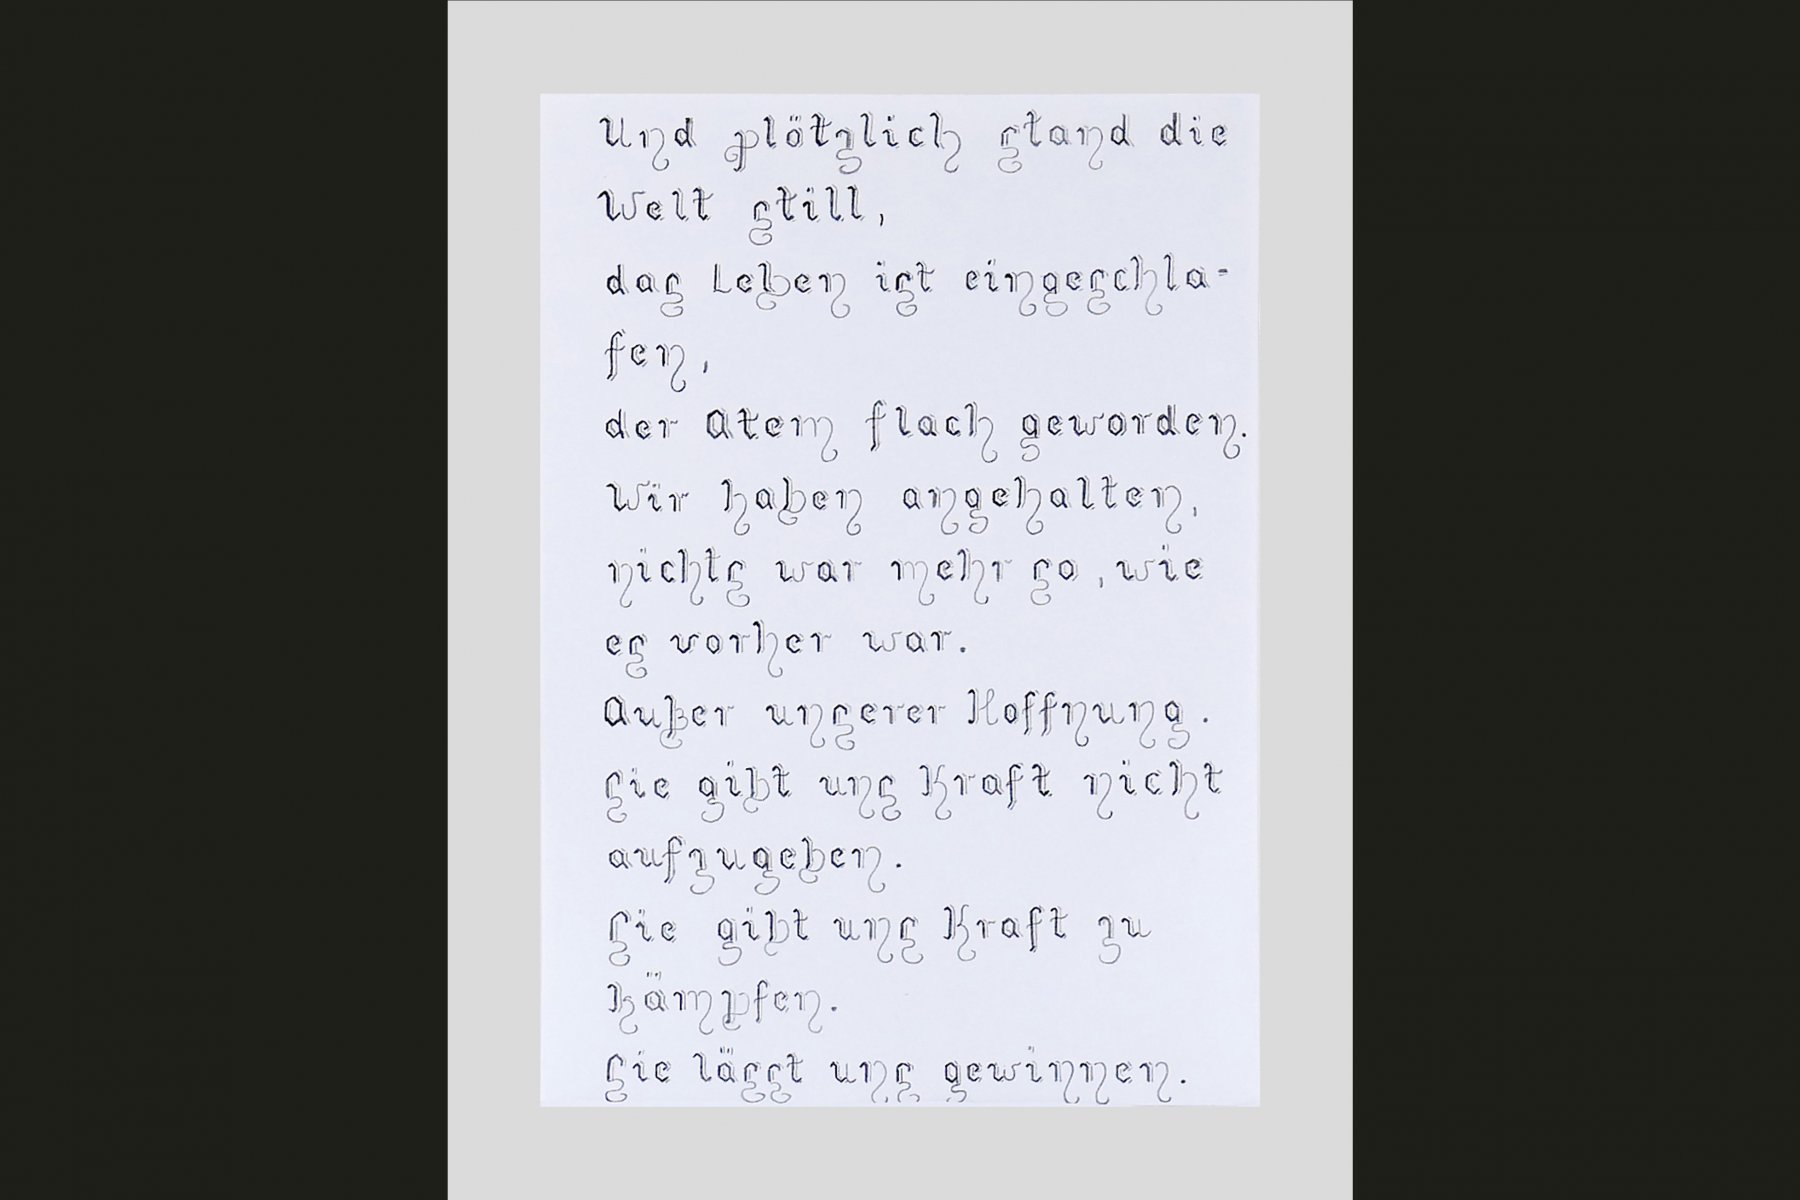 Und plötzlich stand die
Welt still,
das Leben ist eingeschla-
fen,
der Atem flach geworden.
Wir haben angehalten,
nichts war mehr so, wie
es vorher war.
Außer unserer Hoffnung.
Sie gibt uns Kraft nicht
aufzugeben.
Sie gibt uns Kraft zu
kämpfen.
Sie lässt uns gewinnen.